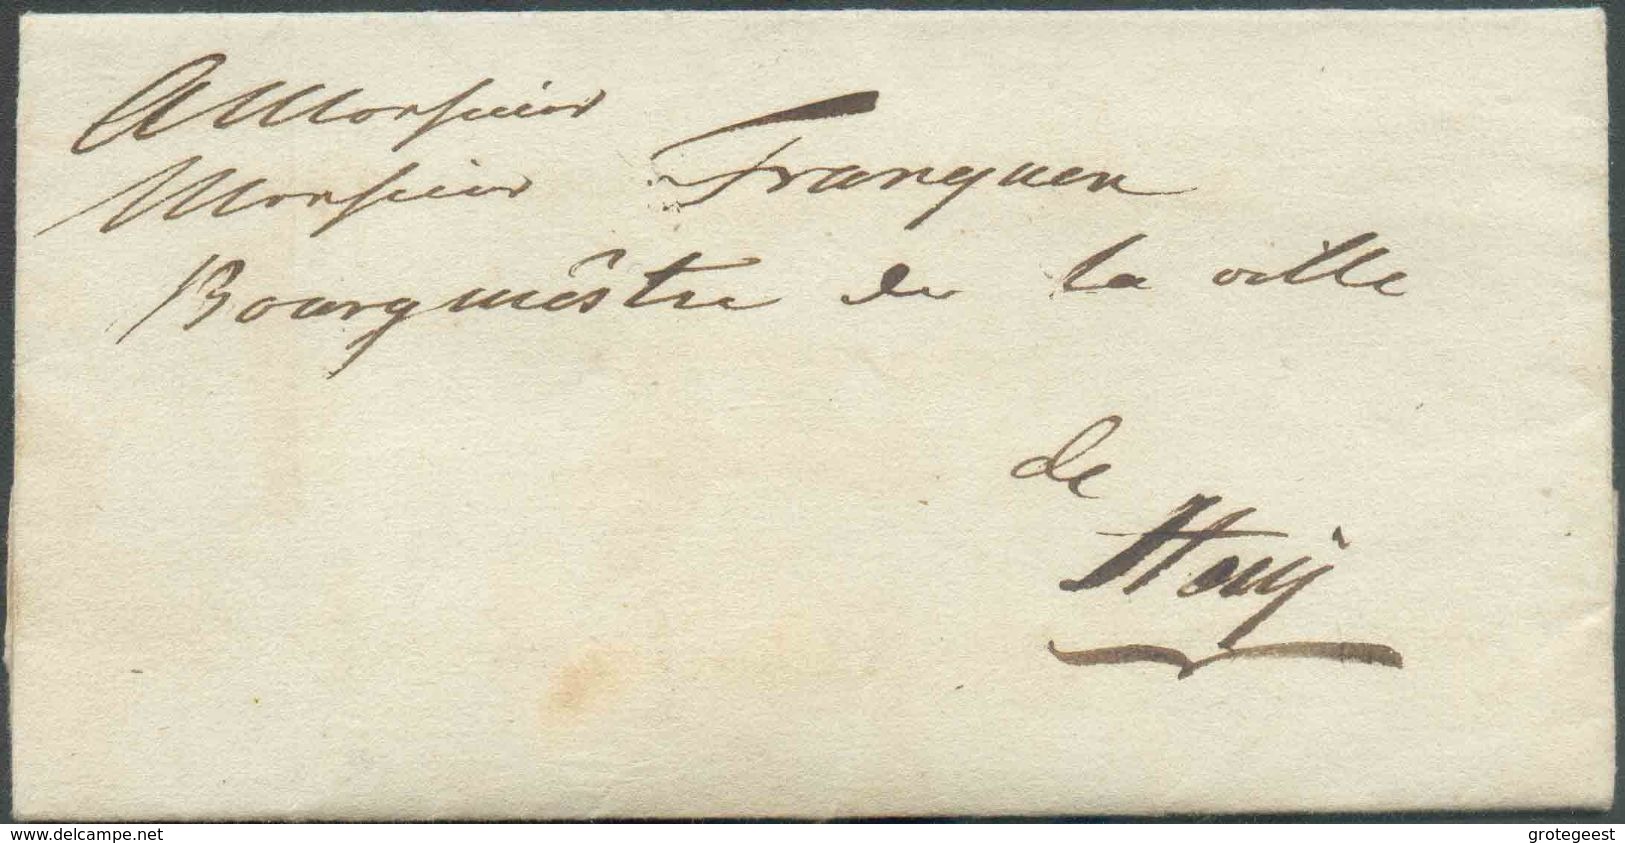 A Monsieur
Monsieur Franquen
Bourgmêstre de la ville
de
Huij
www.delcampe.net
grotegeest